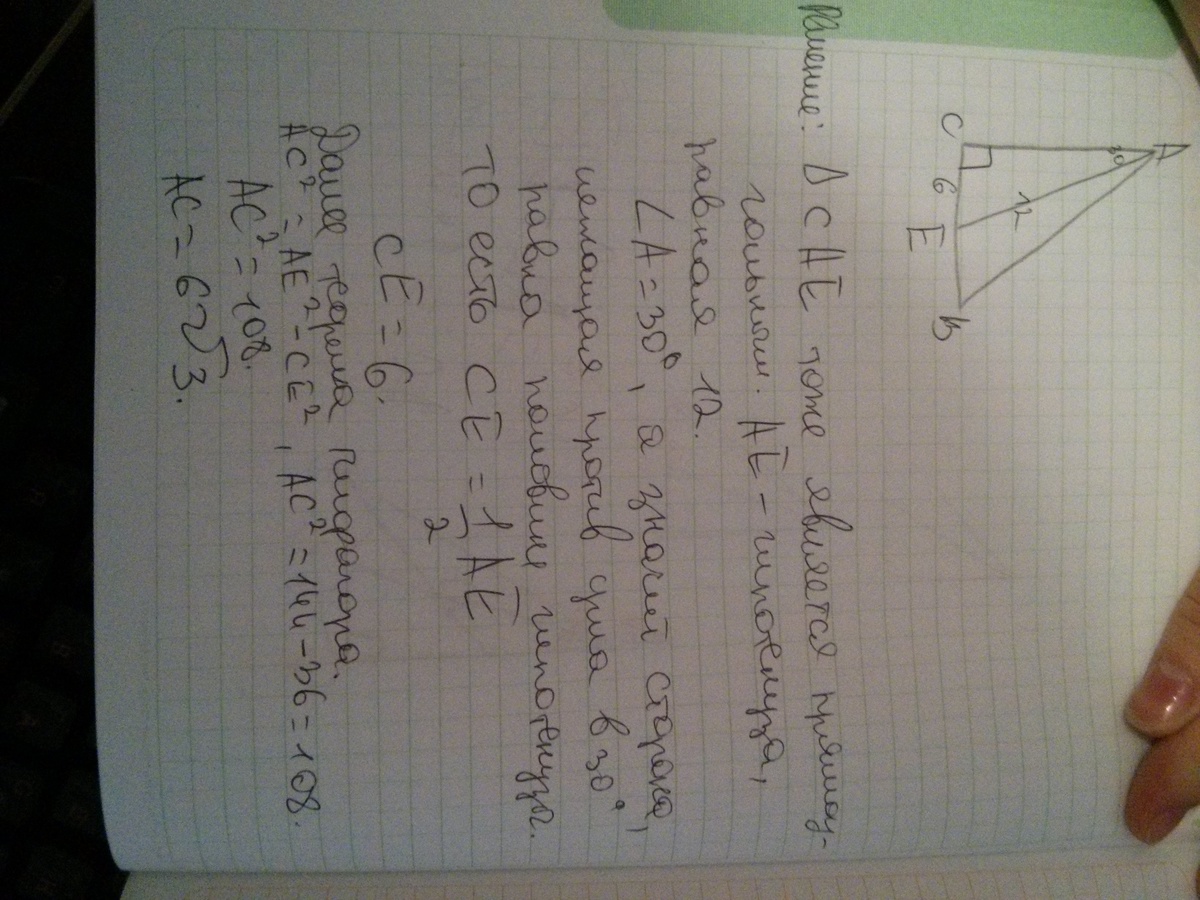 A
30
12
C
6
E
B
Решение: Δ CAE тоже является прямоу-
гольным. AE - гипотенуза,
равная 12.
∠A = 30°, а значит сторона,
лежащая против угла в 30°,
равна половине гипотенузы.
то есть CE = 1/2 AE
CE = 6.
Далее теорема Пифагора.
AC² = AE² - CE², AC² = 144 - 36 = 108.
AC² = 108.
AC = 6√3.